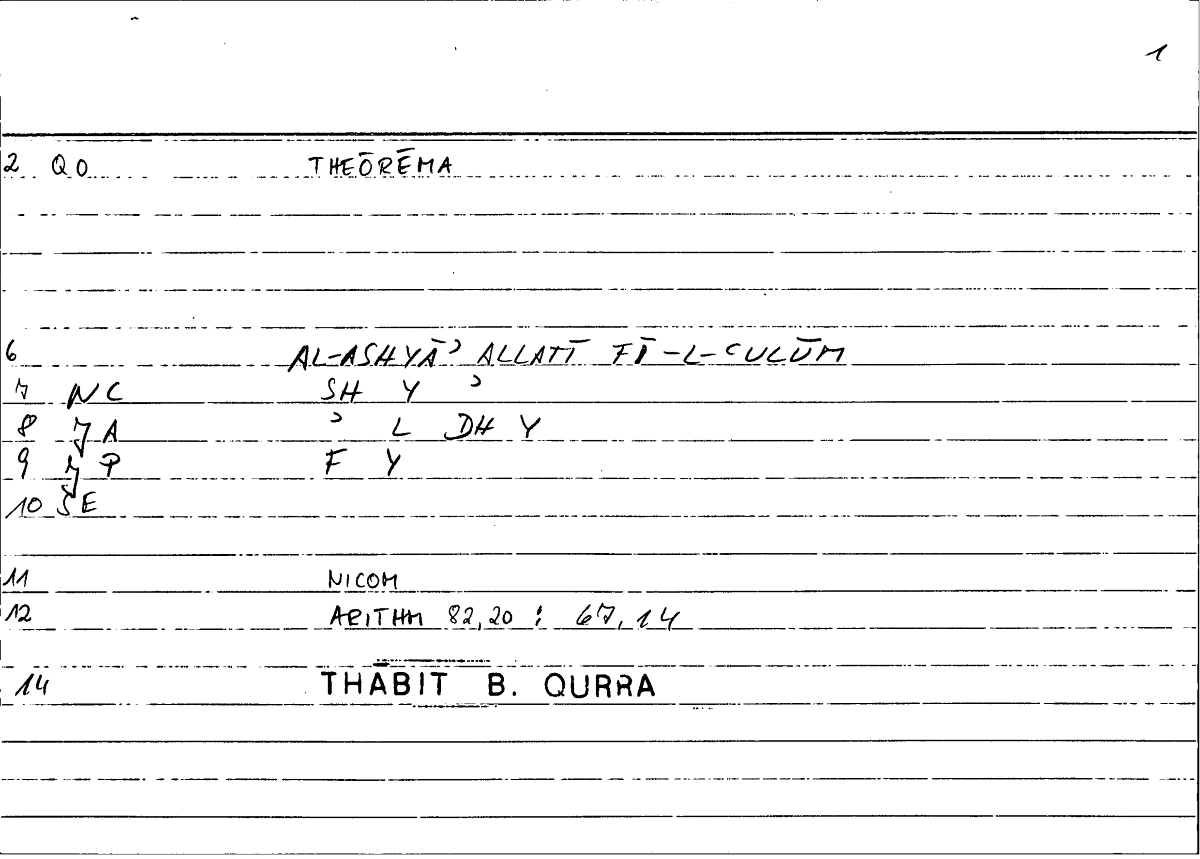 1
2 QO THEŌRĒMA
6 AL-ASHYĀʾ ALLATĪ FĪ-L-ʿULŪM
7 NC SH Y ʾ
8 JA ʾ L DH Y
9 JP F Y
10 ŠE
11 NICOM
12 ARITHM 82,20 : 67,14
14 THĀBIT B. QURRA